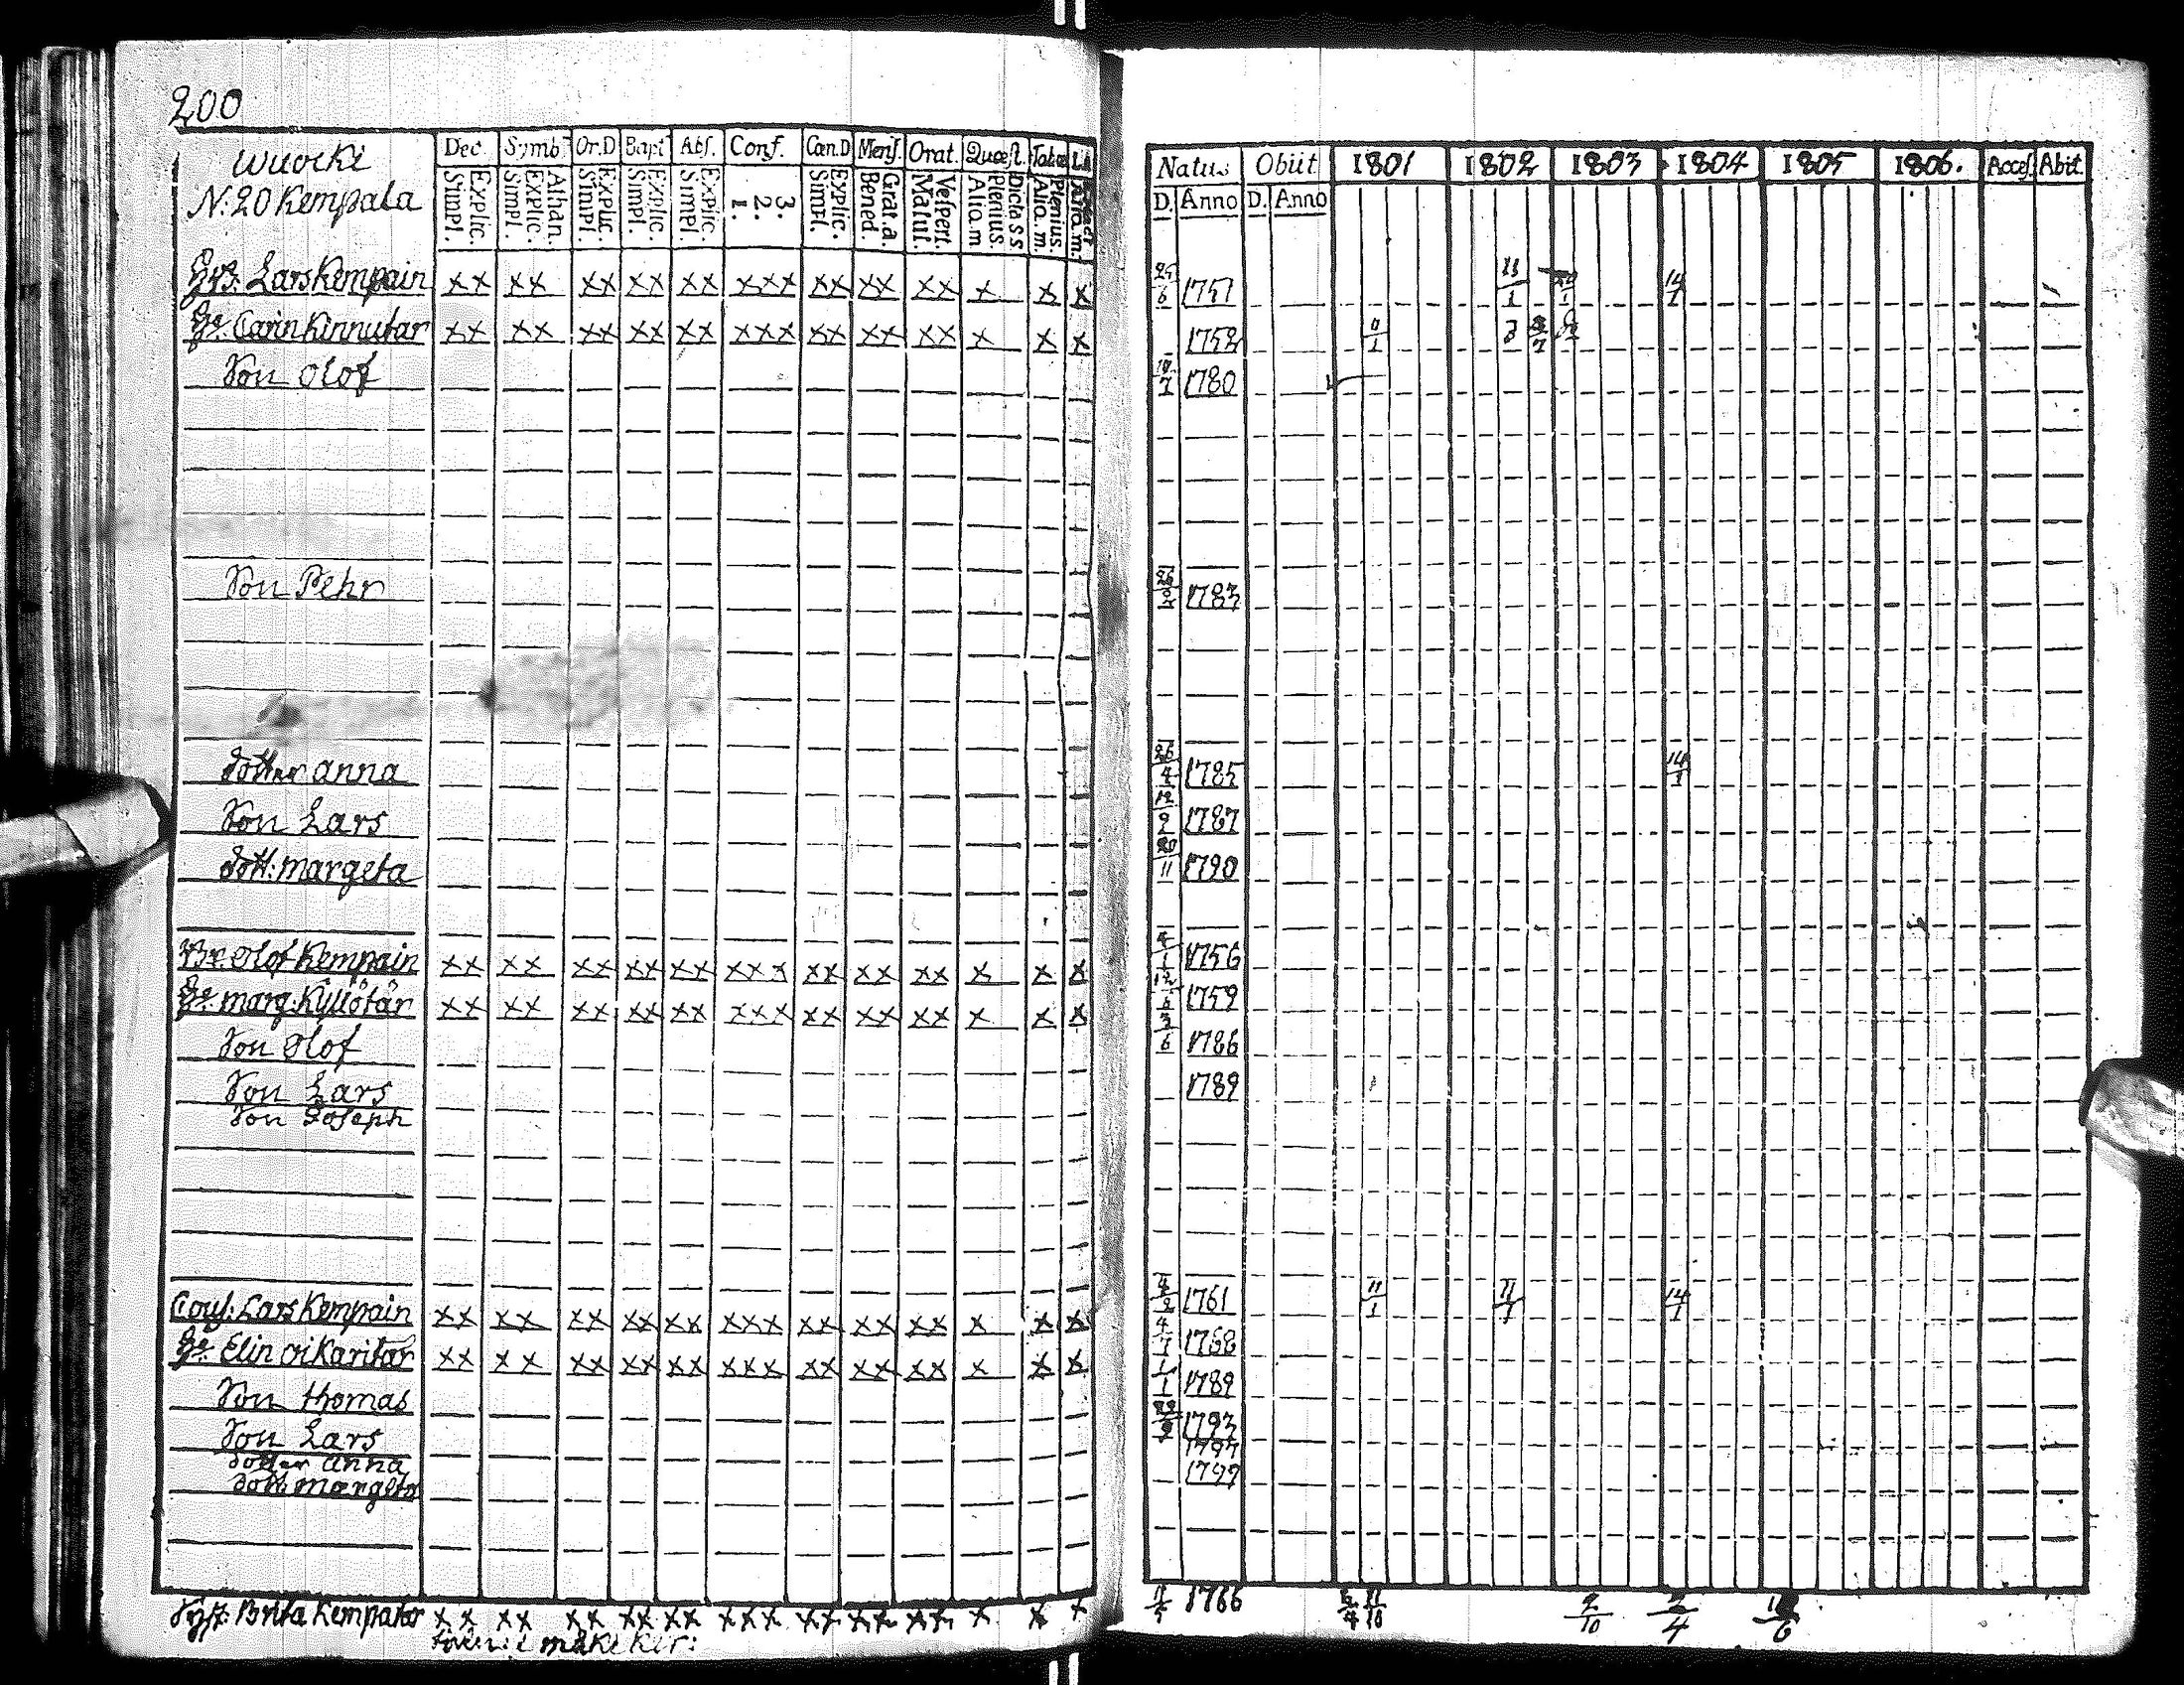 200
Wuocki
N:20 Kempala
Dec. Symb. Or.D Bapt Abs. Conf. Cœn.D Mens. Orat. Quæst. Tabœ
Explic. Simpl. Athan. Explic. Simpl. Explic. Simpl. Explic. Simpl. Explic. Simpl. 3. 2. 1. Explic. Simpl. Grat.a. Bened. Vespert. Matut. Dicta s s Plenius. Alio.m Plenius. Alio.m.
Natus Obiit 1801 1802 1803 1804 1805 1806. Acces. Abit.
D. Anno D. Anno
Lars Kempain xx xx xx xx xx xxx xx xx xx x x x 25/6 1751 14/1
Carin Kinnutar xx xx xx xx xx xxx xx xx xx x x x 1752 11/1
Son Olof 1780
Son Pehr 1783
Dotter Anna 26/4 1785 14/1
Son Lars 12/9 1787
Dott: Margeta 20/11 1790
Br: Olof Kempain xx xx xx xx xx xxx xx xx xx x x x 4/1 1756
Marg: Kyllötär xx xx xx xx xx xxx xx xx xx x x x 1759
Son Olof 3/6 1786
Son Lars 1789
Son Joseph
Cous: Lars Kempain xx xx xx xx xx xxx xx xx xx x x x 4/2 1761 11/1 11/1 14/1
Elin Oikaritar xx xx xx xx xx xxx xx xx xx x x x 4/7 1768
Son Thomas 1/1 1789
Son Lars 1793
Dotter Anna 1797
Dott: Margeta 1799
Syst: Brita Kempatar xx xx xx xx xx xxx xx xx xx x x x 1766 2/10 2/4